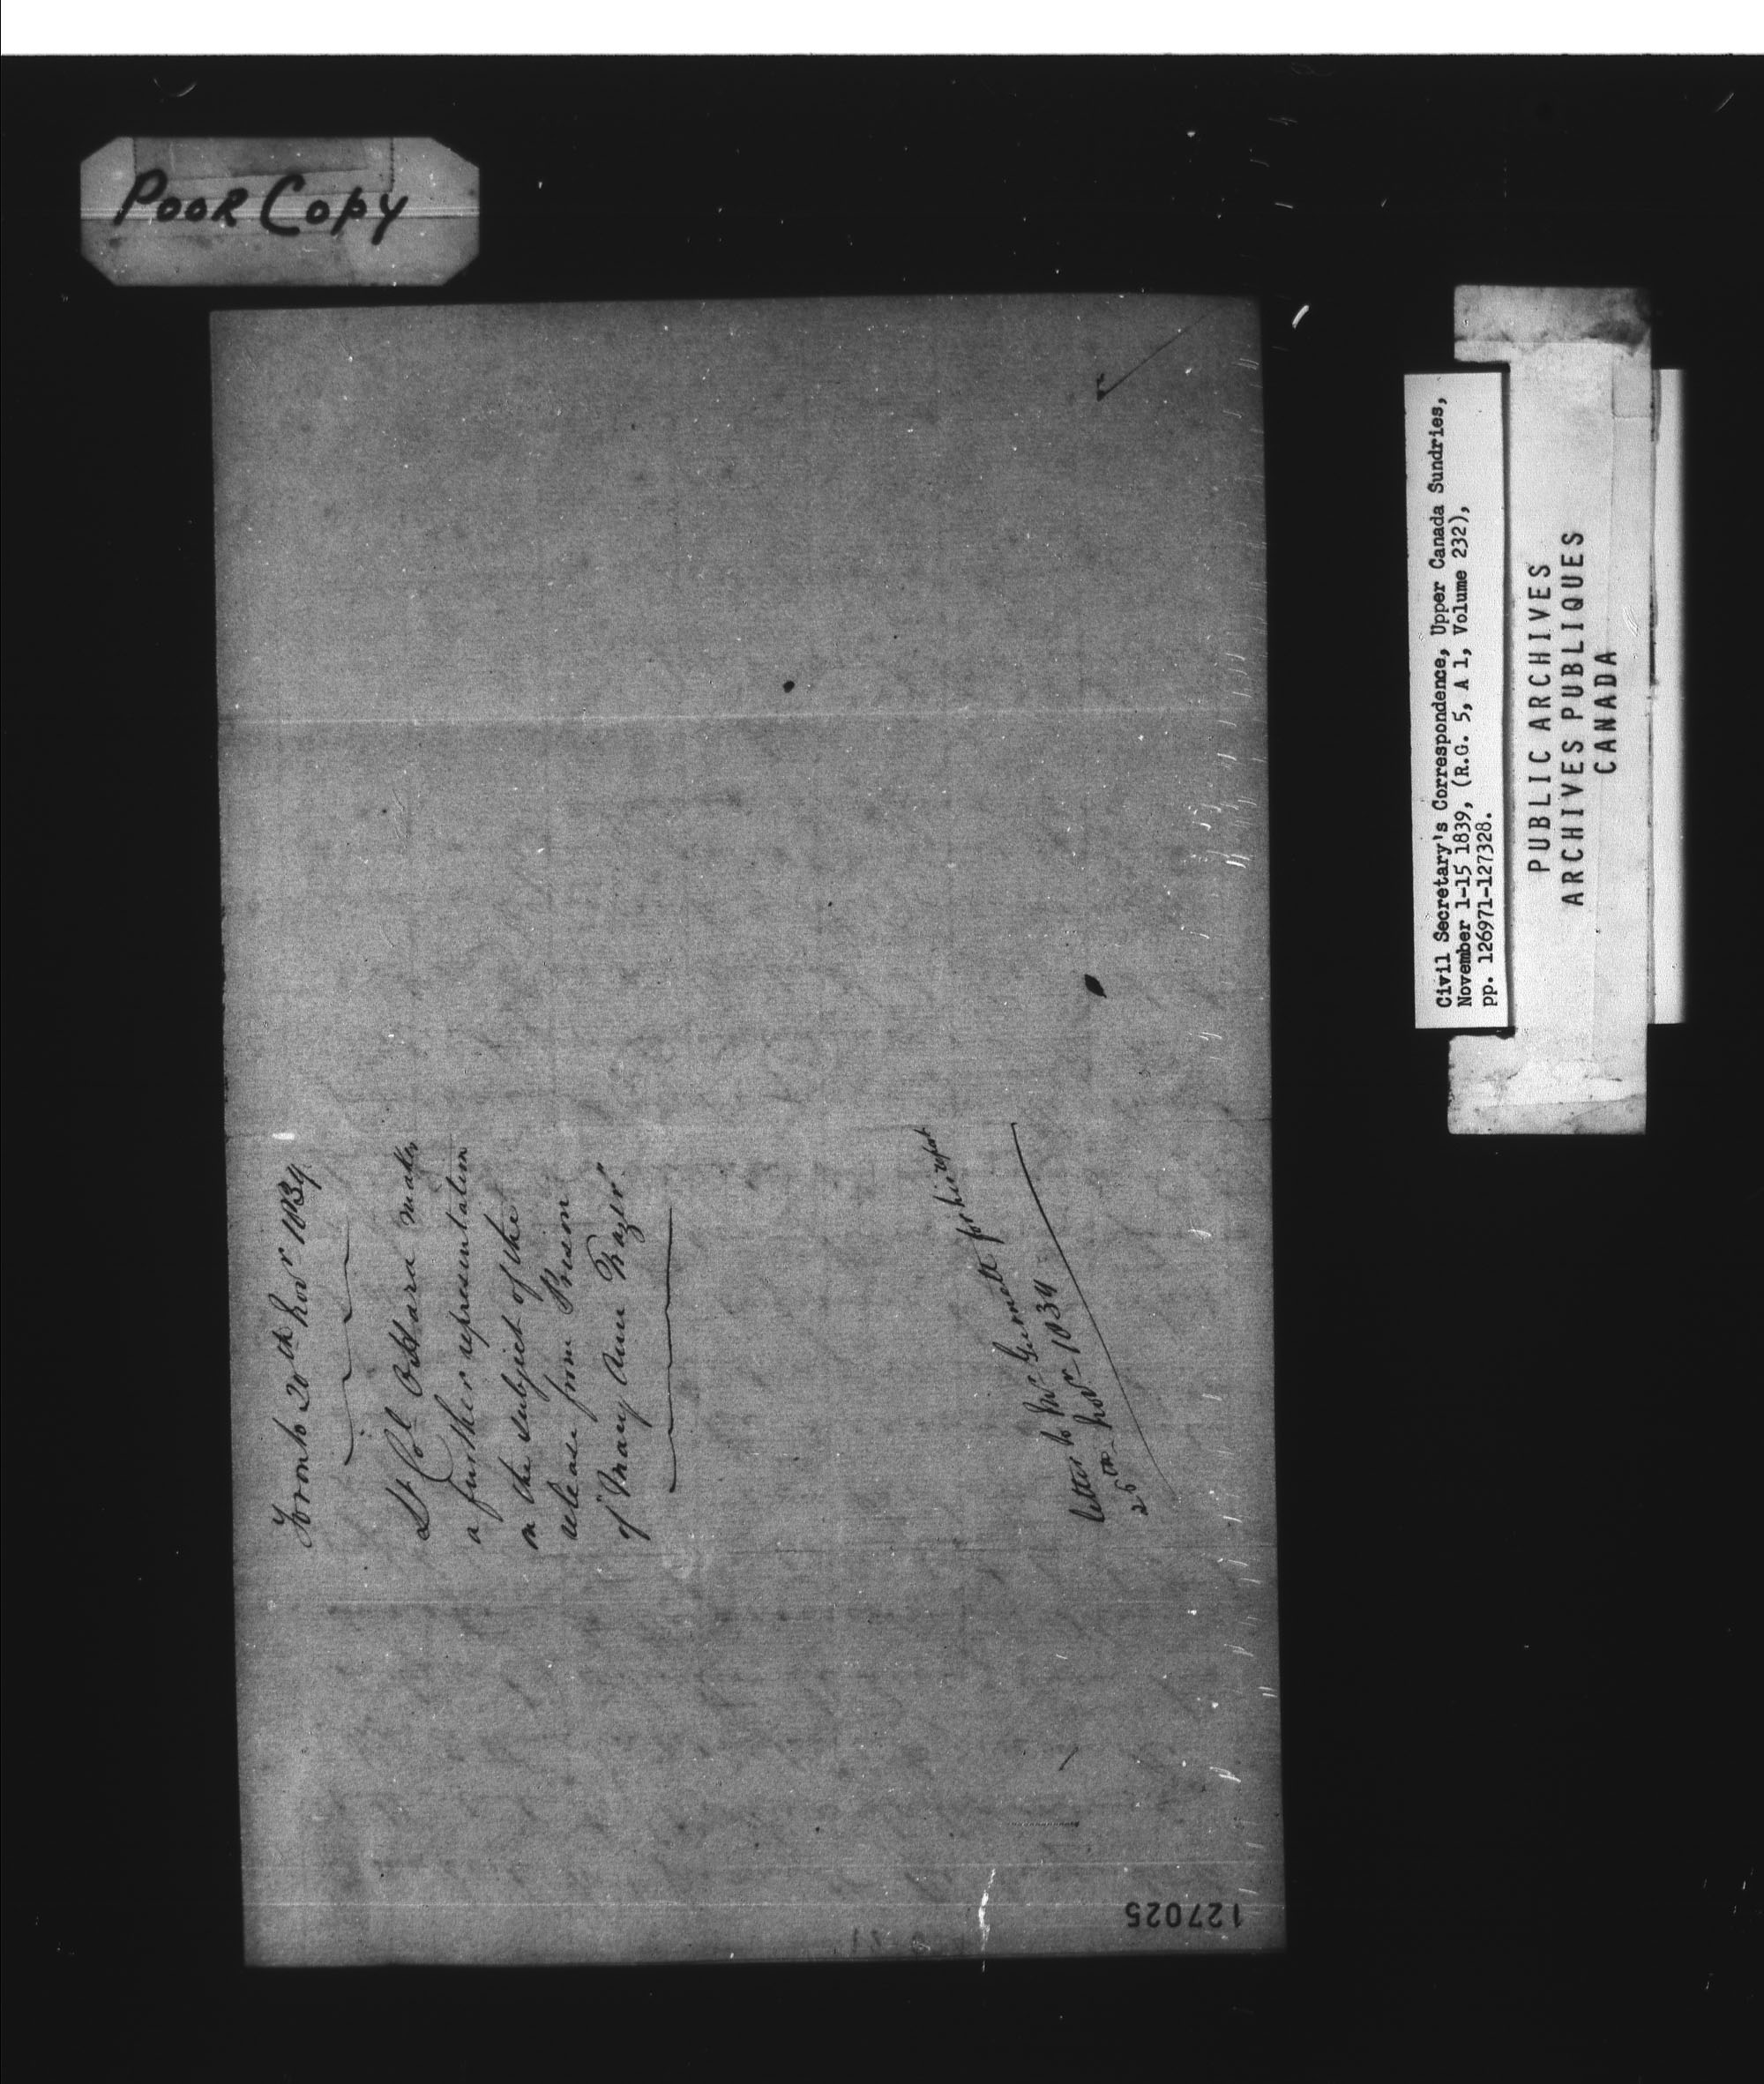 POOR COPY
Toronto 20th Novr 1839
Lt Col O'Hara makes
a further representation
on the subject of the
release from Prison
of "Mary Ann Frazer"
letter to Mr Gurnett for his report
26th Novr 1839
127025
Civil Secretary's Correspondence, Upper Canada Sundries,
November 1-15 1839, (R.G. 5, A 1, Volume 232),
pp. 126971-127328.
PUBLIC ARCHIVES
ARCHIVES PUBLIQUES
CANADA